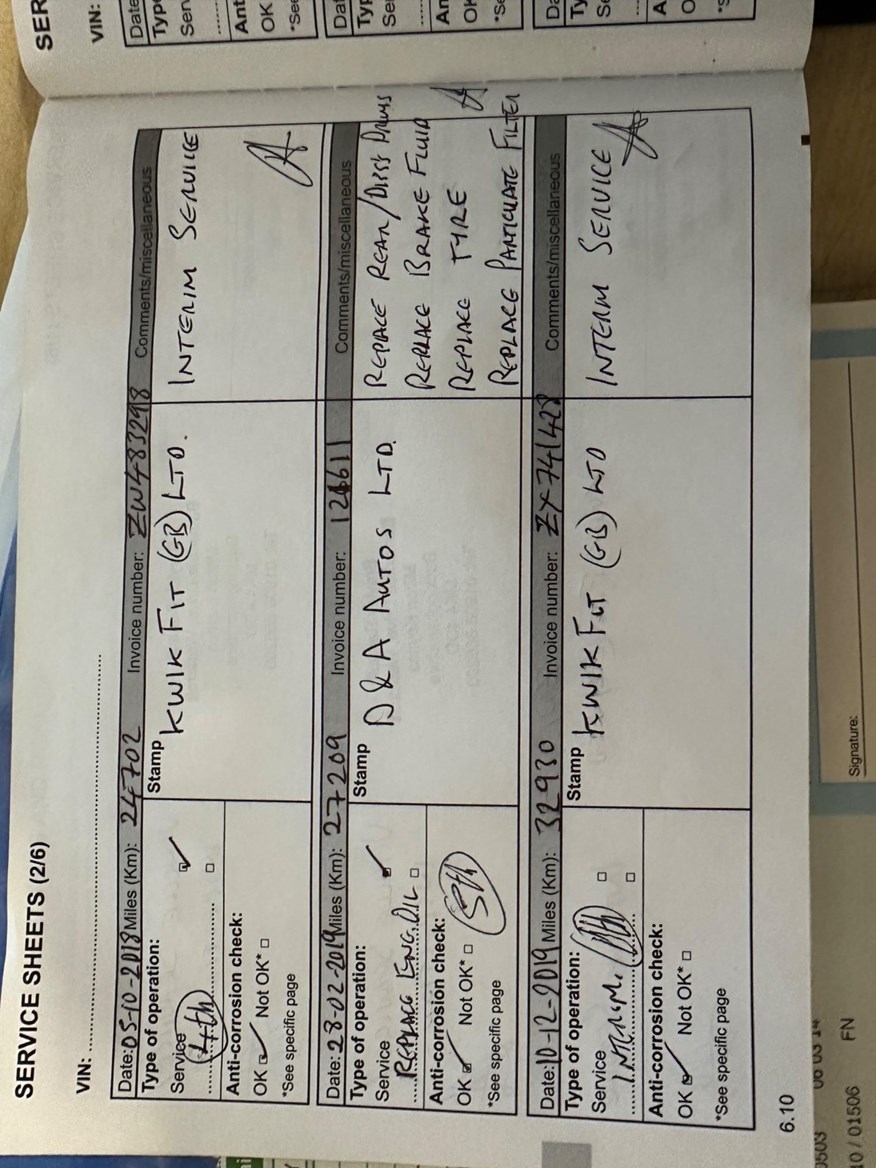 SERVICE SHEETS (2/6)
VIN:
Date: 05-10-2018 Miles (Km): 24702 Invoice number: ZW483298 Comments/miscellaneous
Type of operation:
Stamp
INTERIM SERVICE
Service
KWIK FIT (GB) LTD.
4th
Anti-corrosion check:
OK Not OK*
*See specific page
Date: 28-02-2019 Miles (Km): 27209 Invoice number: 126611 Comments/miscellaneous
Type of operation:
Stamp
REPLACE REAR/
Service
D & A AUTOS LTD.
REPLACE BRAKE FLUID
REPLACE ENG. OIL
REPLACE TYRE
Anti-corrosion check:
5th
REPLACE PARTICULATE FILTER
OK Not OK*
*See specific page
Date: 10-12-2019 Miles (Km): 32930 Invoice number: ZX741428 Comments/miscellaneous
Type of operation:
Stamp
INTERM SERVICE
Service
KWIK FIT (GB) LTD
Anti-corrosion check:
OK Not OK*
*See specific page
6.10
SER
VIN:
Date
Type
Serv
Ant
OK
*See
Signature:
10 / 01506 FN